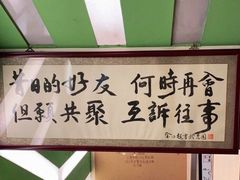 昔日的好友 何時再會
但願共聚 互訴往事